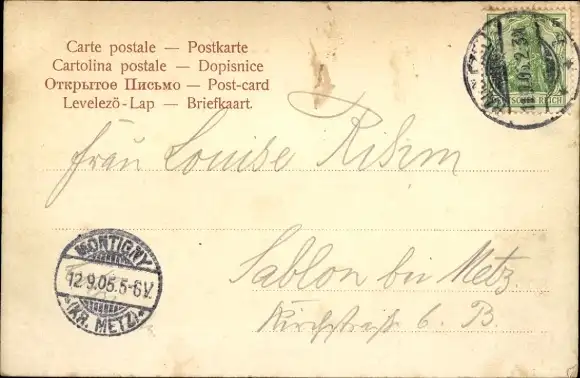 Carte postale — Postkarte
Cartolina postale — Dopisnice
Открытое Письмо — Post-card
Levelező-Lap — Briefkaart.
5
SCHES REICH
Frau Louise Rihm
Sablon bei Metz
Kirchstraße 6. B.
MONTIGNY
12.9.05.5-6V.
*(KR. METZ)*